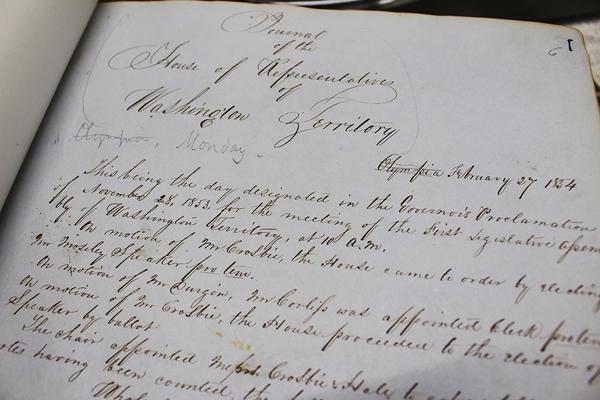 6 1
Journal
of the
House of Representatives
of
Washington Territory
Olympia, Monday -
Olympia February 27 1854
This being the day designated in the Governor's Proclamation
of November 28, 1853 for the meeting of the First Legislative Assem
bly of Washington Territory, at 10 A.M.
On motion of Mr Crosbie, the House came to order by electing
Mr Mosely Speaker pro tem.
On motion of Mr Durgin, Mr Corliss was appointed clerk protem
On motion of Mr Crosbie, the House proceeded to the election of
Speaker by ballot
The chair appointed Messrs. Crosbie & Haley to
otes having been counted, the
Whole